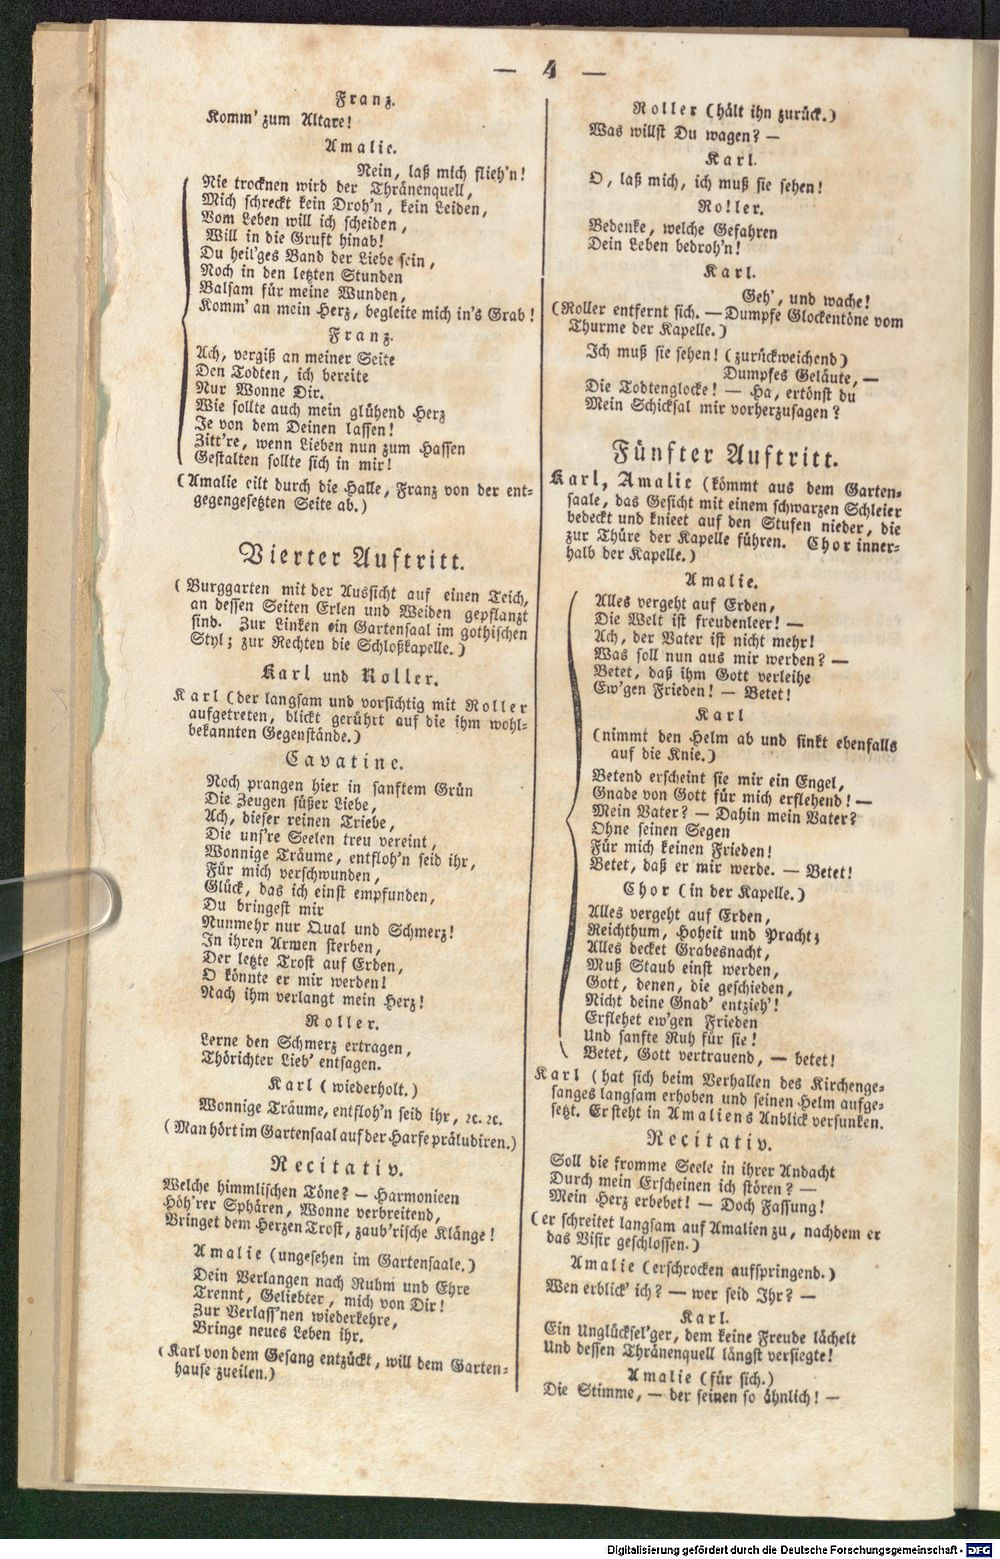 — 4 —
Franz.
Komm' zum Altare!
Amalie.
Nein, laß mich flieh'n!
Nie trocknen wird der Thränenquell,
Mich schreckt kein Droh'n, kein Leiden,
Vom Leben will ich scheiden,
Will in die Gruft hinab!
Du heil'ges Band der Liebe sein,
Noch in den letzten Stunden
Balsam für meine Wunden,
Komm' an mein Herz, begleite mich in's Grab!
Franz.
Ach, vergiß an meiner Seite
Den Todten, ich bereite
Nur Wonne Dir.
Wie sollte auch mein glühend Herz
Je von dem Deinen lassen!
Zitt're, wenn Lieben nun zum Hassen
Gestalten sollte sich in mir!
(Amalie eilt durch die Halle, Franz von der ent-
gegengesetzten Seite ab.)
Vierter Auftritt.
(Burggarten mit der Aussicht auf einen Teich,
an dessen Seiten Erlen und Weiden gepflanzt
sind. Zur Linken ein Gartensaal im gothischen
Styl; zur Rechten die Schloßkapelle.)
Karl und Roller.
Karl (der langsam und vorsichtig mit Roller
aufgetreten, blickt gerührt auf die ihm wohl-
bekannten Gegenstände.)
Cavatine.
Noch prangen hier in sanftem Grün
Die Zeugen süßer Liebe,
Ach, dieser reinen Triebe,
Die uns're Seelen treu vereint,
Wonnige Träume, entfloh'n seid ihr,
Für mich verschwunden,
Glück, das ich einst empfunden,
Du bringest mir
Nunmehr nur Qual und Schmerz!
In ihren Armen sterben,
Der letzte Trost auf Erden,
O könnte er mir werden!
Nach ihm verlangt mein Herz!
Roller.
Lerne den Schmerz ertragen,
Thörichter Lieb' entsagen.
Karl (wiederholt.)
Wonnige Träume, entfloh'n seid ihr, ꝛc. ꝛc.
(Man hört im Gartensaal auf der Harfe präludiren.)
Recitativ.
Welche himmlischen Töne? — Harmonieen
Höh'rer Sphären, Wonne verbreitend,
Bringet dem Herzen Trost, zaub'rische Klänge!
Amalie (ungesehen im Gartensaale.)
Dein Verlangen nach Ruhm und Ehre
Trennt, Geliebter, mich von Dir!
Zur Verlass'nen wiederkehre,
Bringe neues Leben ihr.
(Karl von dem Gesang entzückt, will dem Garten-
hause zueilen.)
Roller (hält ihn zurück.)
Was willst Du wagen? —
Karl.
O, laß mich, ich muß sie sehen!
Roller.
Bedenke, welche Gefahren
Dein Leben bedroh'n!
Karl.
Geh', und wache!
(Roller entfernt sich. — Dumpfe Glockentöne vom
Thurme der Kapelle.)
Ich muß sie sehen! (zurückweichend)
Dumpfes Geläute, —
Die Todtenglocke! — Ha, ertönst du
Mein Schicksal mir vorherzusagen?
Fünfter Auftritt.
Karl, Amalie (kömmt aus dem Garten-
saale, das Gesicht mit einem schwarzen Schleier
bedeckt und knieet auf den Stufen nieder, die
zur Thüre der Kapelle führen. Chor inner-
halb der Kapelle.)
Amalie.
Alles vergeht auf Erden,
Die Welt ist freudenleer! —
Ach, der Vater ist nicht mehr!
Was soll nun aus mir werden? —
Betet, daß ihm Gott verleihe
Ew'gen Frieden! — Betet!
Karl
(nimmt den Helm ab und sinkt ebenfalls
auf die Knie.)
Betend erscheint sie mir ein Engel,
Gnade von Gott für mich erflehend! —
Mein Vater? — Dahin mein Vater?
Ohne seinen Segen
Für mich keinen Frieden!
Betet, daß er mir werde. — Betet!
Chor (in der Kapelle.)
Alles vergeht auf Erden,
Reichthum, Hoheit und Pracht;
Alles decket Grabesnacht,
Muß Staub einst werden,
Gott, denen, die geschieden,
Nicht deine Gnad' entzieh'!
Erflehet ew'gen Frieden
Und sanfte Ruh für sie!
Betet, Gott vertrauend, — betet!
Karl (hat sich beim Verhallen des Kirchenge-
sanges langsam erhoben und seinen Helm aufge-
setzt. Er steht in Amaliens Anblick versunken.
Recitativ.
Soll die fromme Seele in ihrer Andacht
Durch mein Erscheinen ich stören? —
Mein Herz erbebet! — Doch Fassung!
(er schreitet langsam auf Amalien zu, nachdem er
das Visir geschlossen.)
Amalie (erschrocken aufspringend.)
Wen erblick' ich? — wer seid Ihr? —
Karl.
Ein Unglücksel'ger, dem keine Freude lächelt
Und dessen Thränenquell längst versiegte!
Amalie (für sich.)
Die Stimme, — der seinen so ähnlich! —
Digitalisierung gefördert durch die Deutsche Forschungsgemeinschaft - DFG